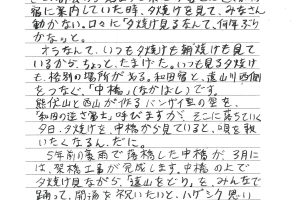 宿に案内していた時、夕焼けを見て、みなさん
動かない。口々に「夕焼け見るなんて、何年ぶり
かな」と。
オラなんて、いつも夕焼も朝焼けも見て
いるから、ちょっと、たまげた。いつも見る夕焼け
も、格別の場所がある。和田宿と、遠山川西側
をつなぐ、「中橋」(なかばし)です。
熊伏山と西山が作るバンザイ型の空を、
「和田の逆さ富士」呼びますが、そこに落ちていく
夕日・夕焼を、中橋から見ていると、唄を歌
いたくなるんだに。
5年前の豪雨で落橋した中橋が、3月に
は、架橋工事が完成します。中橋の上で
夕焼け見ながら、「遠山をどり」を、みんなで
踊って、開通を祝いたいと、ハゲシク思い